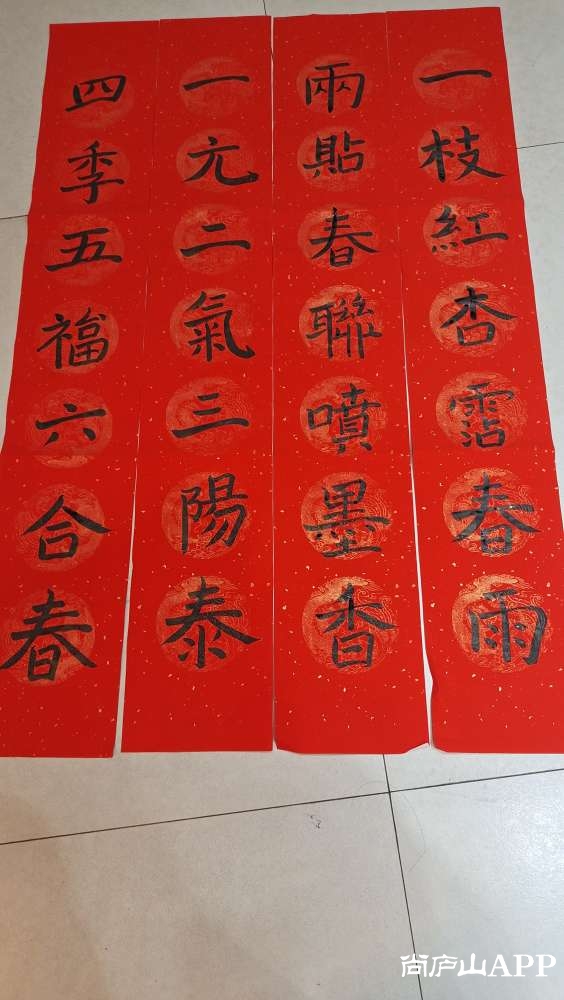 一枝紅杏霑春雨
兩貼春聯噴墨香
一元二氣三陽泰
四季五福六合春
尚庐山APP